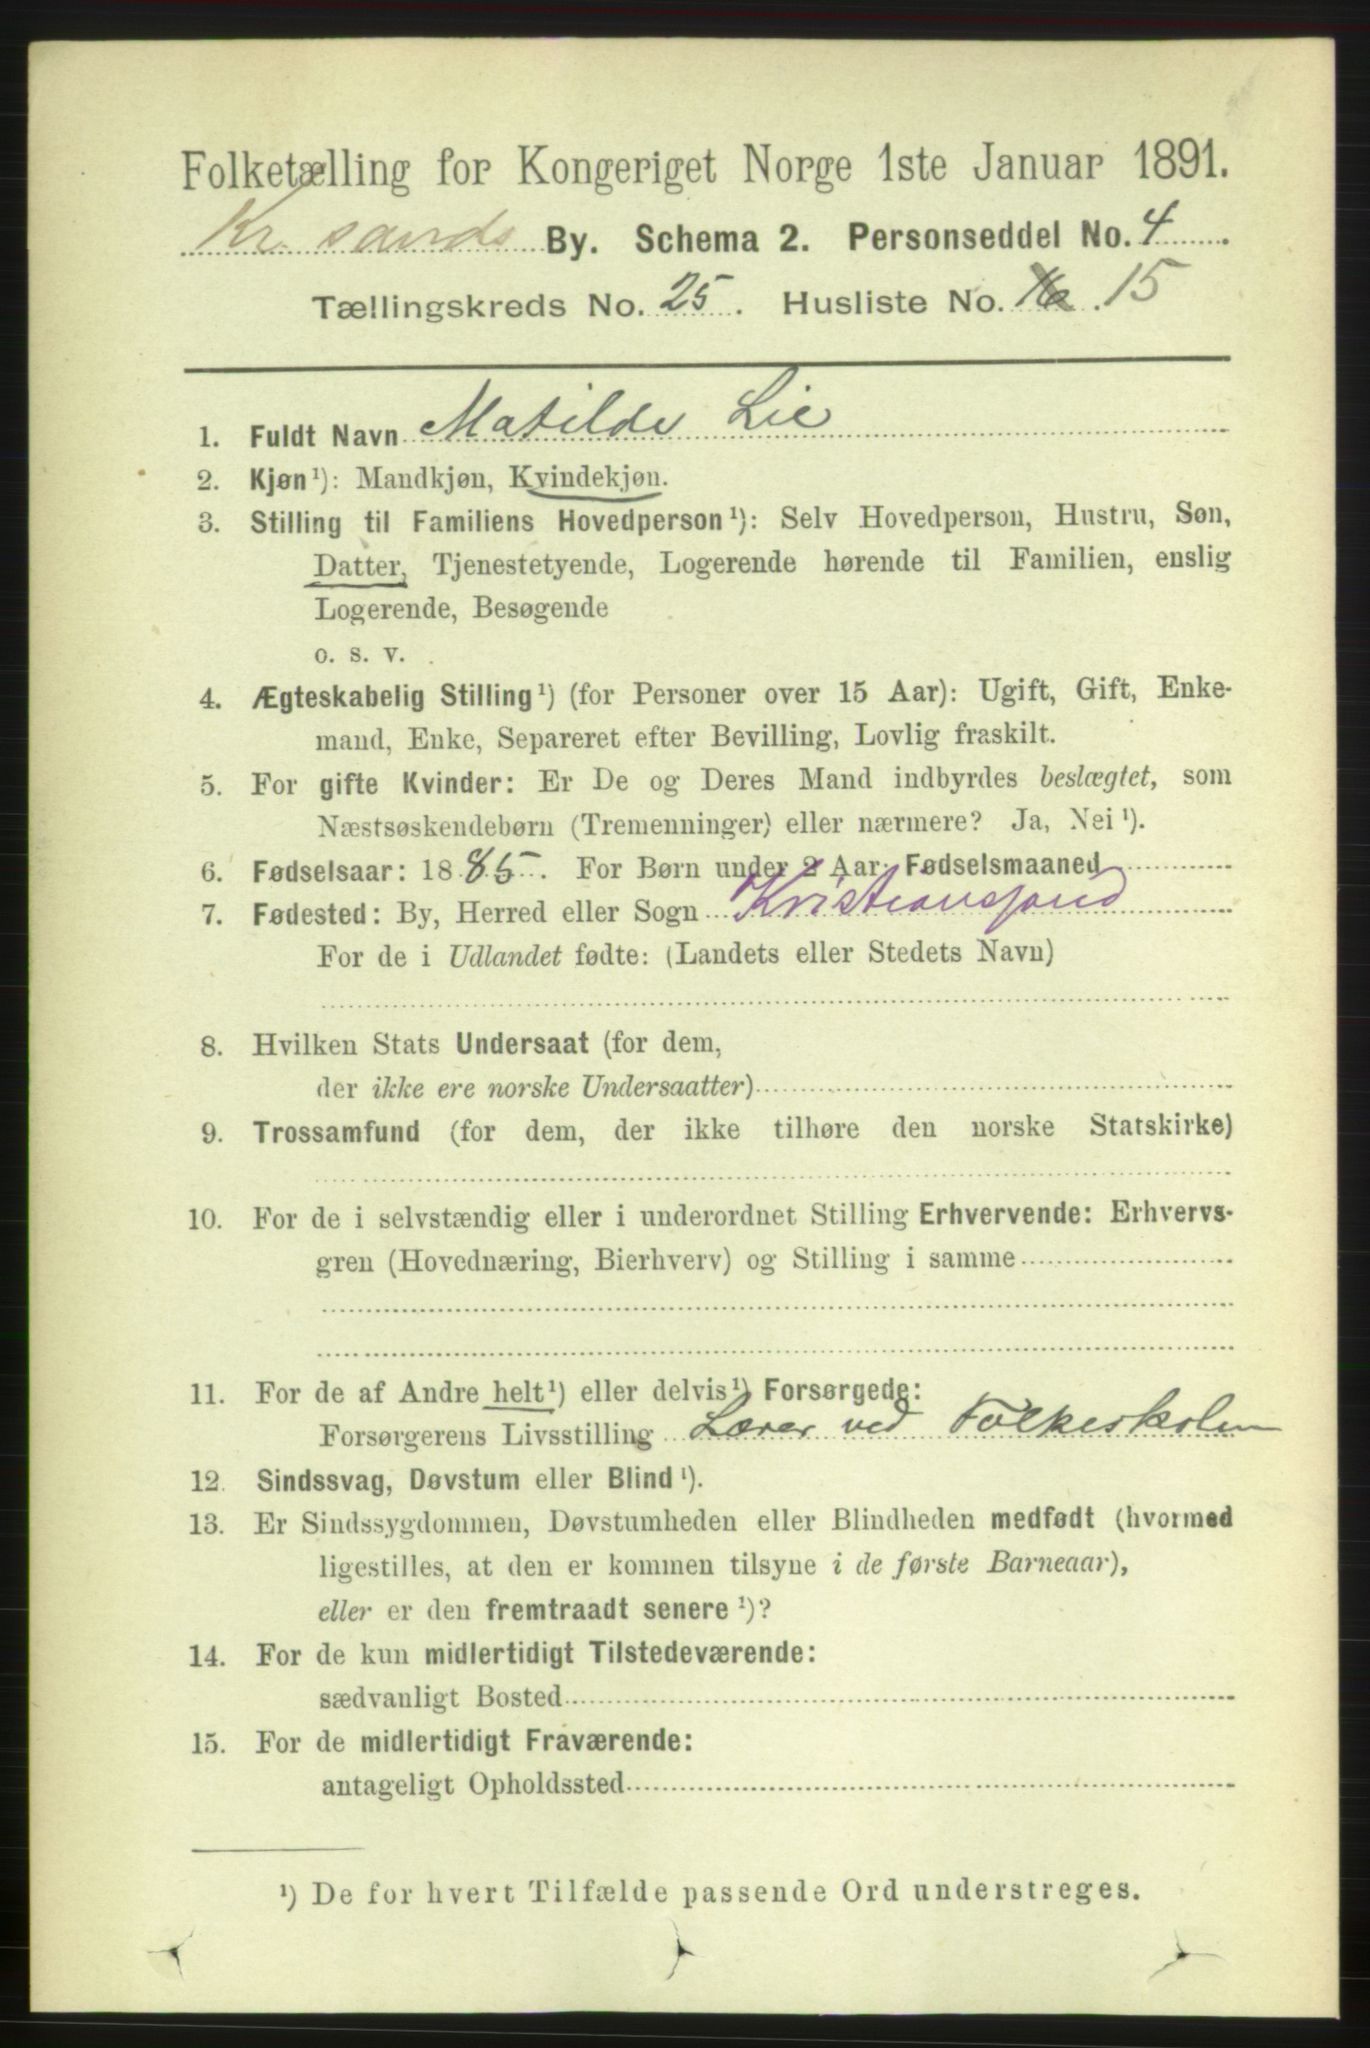 Folketælling for Kongeriget Norge 1ste Januar 1891.
Kr. sands By. Schema 2. Personseddel No. 4
Tællingskreds No. 25. Husliste No. 15
1. Fuldt Navn Matilde Lie
2. Kjøn¹): Mandkjøn, Kvindekjøn.
3. Stilling til Familiens Hovedperson¹): Selv Hovedperson, Hustru, Søn,
Datter, Tjenestetyende, Logerende hørende til Familien, enslig
Logerende, Besøgende
o. s. v.
4. Ægteskabelig Stilling¹) (for Personer over 15 Aar): Ugift, Gift, Enke-
mand, Enke, Separeret efter Bevilling, Lovlig fraskilt.
5. For gifte Kvinder: Er De og Deres Mand indbyrdes beslægtet, som
Næstsøskendebørn (Tremenninger) eller nærmere? Ja, Nei¹).
6. Fødselsaar: 1885. For Børn under 2 Aar: Fødselsmaaned
7. Fødested: By, Herred eller Sogn Kristianssand
For de i Udlandet fødte: (Landets eller Stedets Navn)
8. Hvilken Stats Undersaat (for dem,
der ikke ere norske Undersaatter)
9. Trossamfund (for dem, der ikke tilhøre den norske Statskirke)
10. For de i selvstændig eller i underordnet Stilling Erhvervende: Erhvervs-
gren (Hovednæring, Bierhverv) og Stilling i samme
11. For de af Andre helt¹) eller delvis¹) Forsørgede:
Forsørgerens Livsstilling Lærer ved Folkeskolen
12. Sindssvag, Døvstum eller Blind¹).
13. Er Sindssygdommen, Døvstumheden eller Blindheden medfødt (hvormed
ligestilles, at den er kommen tilsyne i de første Barneaar),
eller er den fremtraadt senere¹)?
14. For de kun midlertidigt Tilstedeværende:
sædvanligt Bosted
15. For de midlertidigt Fraværende:
antageligt Opholdssted
¹) De for hvert Tilfælde passende Ord understreges.